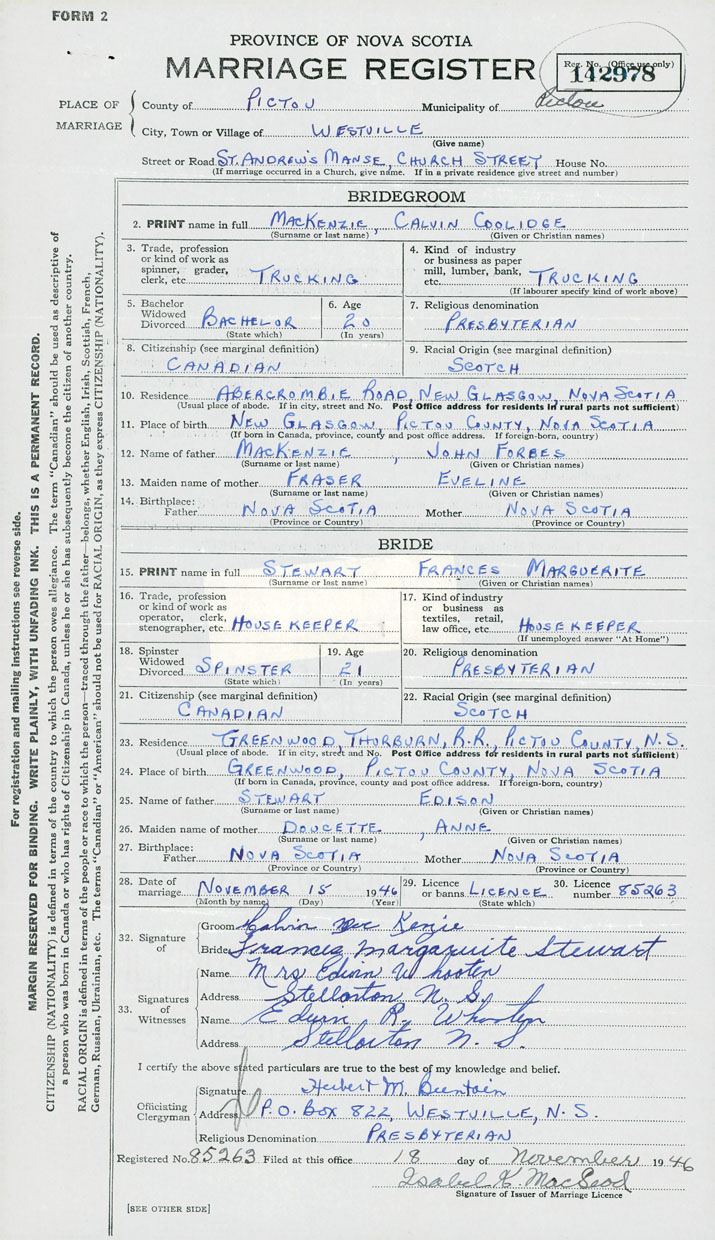 FORM 2
PROVINCE OF NOVA SCOTIA
MARRIAGE REGISTER
Reg. No. (Office use only)
142978
PLACE OF MARRIAGE
County of PICTOU Municipality of Pictou
City, Town or Village of WESTVILLE
(Give name)
Street or Road ST. ANDREW'S MANSE, CHURCH STREET House No.
(If marriage occurred in a Church, give name. If in a private residence give street and number)
BRIDEGROOM
2. PRINT name in full MACKENZIE, CALVIN COOLIDGE
(Surname or last name) (Given or Christian names)
3. Trade, profession or kind of work as spinner, grader, clerk, etc. TRUCKING
4. Kind of industry or business as paper mill, lumber, bank, etc. TRUCKING
(If labourer specify kind of work above)
5. Bachelor Widowed Divorced BACHELOR
(State which)
6. Age 20
(In years)
7. Religious denomination
PRESBYTERIAN
8. Citizenship (see marginal definition)
CANADIAN
9. Racial Origin (see marginal definition)
SCOTCH
10. Residence ABERCROMBIE ROAD, NEW GLASGOW, NOVA SCOTIA
(Usual place of abode. If in city, street and No. Post Office address for residents in rural parts not sufficient)
11. Place of birth NEW GLASGOW, PICTOU COUNTY, NOVA SCOTIA
(If born in Canada, province, county and post office address. If foreign-born, country)
12. Name of father MACKENZIE, JOHN FORBES
(Surname or last name) (Given or Christian names)
13. Maiden name of mother FRASER EVELINE
(Surname or last name) (Given or Christian names)
14. Birthplace: Father NOVA SCOTIA Mother NOVA SCOTIA
(Province or Country) (Province or Country)
BRIDE
15. PRINT name in full STEWART FRANCES MARGUERITE
(Surname or last name) (Given or Christian names)
16. Trade, profession or kind of work as operator, clerk, stenographer, etc. HOUSEKEEPER
17. Kind of industry or business as textiles, retail, law office, etc. HOUSEKEEPER
(If unemployed answer "At Home")
18. Spinster Widowed Divorced SPINSTER
(State which)
19. Age 21
(In years)
20. Religious denomination
PRESBYTERIAN
21. Citizenship (see marginal definition)
CANADIAN
22. Racial Origin (see marginal definition)
SCOTCH
23. Residence GREENWOOD, THORBURN, R.R., PICTOU COUNTY, N.S.
(Usual place of abode. If in city, street and No. Post Office address for residents in rural parts not sufficient)
24. Place of birth GREENWOOD, PICTOU COUNTY, NOVA SCOTIA
(If born in Canada, province, county and post office address. If foreign-born, country)
25. Name of father STEWART EDISON
(Surname or last name) (Given or Christian names)
26. Maiden name of mother DOUCETTE, ANNE
(Surname or last name) (Given or Christian names)
27. Birthplace: Father NOVA SCOTIA Mother NOVA SCOTIA
(Province or Country) (Province or Country)
28. Date of marriage NOVEMBER 15 1946
(Month by name) (Day) (Year)
29. Licence or banns LICENCE
(State which)
30. Licence number 85263
32. Signature of
Groom Calvin MacKenzie
Bride Frances Margaruite Stewart
33. Signatures of Witnesses
Name Mrs Edwin Whooten
Address Stellarton N. S.
Name Edwin R. Whooten
Address Stellarton N. S.
I certify the above stated particulars are true to the best of my knowledge and belief.
Officiating Clergyman
Signature Herbert M. Buntain
Address P.O. BOX 822, WESTVILLE, N.S.
Religious Denomination PRESBYTERIAN
Registered No. 85263 Filed at this office 18 day of November 1946
Isabel K. MacLeod
Signature of Issuer of Marriage Licence
[SEE OTHER SIDE]
For registration and mailing instructions see reverse side.
MARGIN RESERVED FOR BINDING. WRITE PLAINLY, WITH UNFADING INK. THIS IS A PERMANENT RECORD.
CITIZENSHIP (NATIONALITY) is defined in terms of the country to which the person owes allegiance. The term "Canadian" should be used as descriptive of
a person who was born in Canada or who has rights of Citizenship in Canada, unless he or she has subsequently become the citizen of another country.
RACIAL ORIGIN is defined in terms of the people or race to which the person—traced through the father—belongs, whether English, Irish, Scottish, French,
German, Russian, Ukrainian, etc. The terms "Canadian" or "American" should not be used for RACIAL ORIGIN, as they express CITIZENSHIP (NATIONALITY).